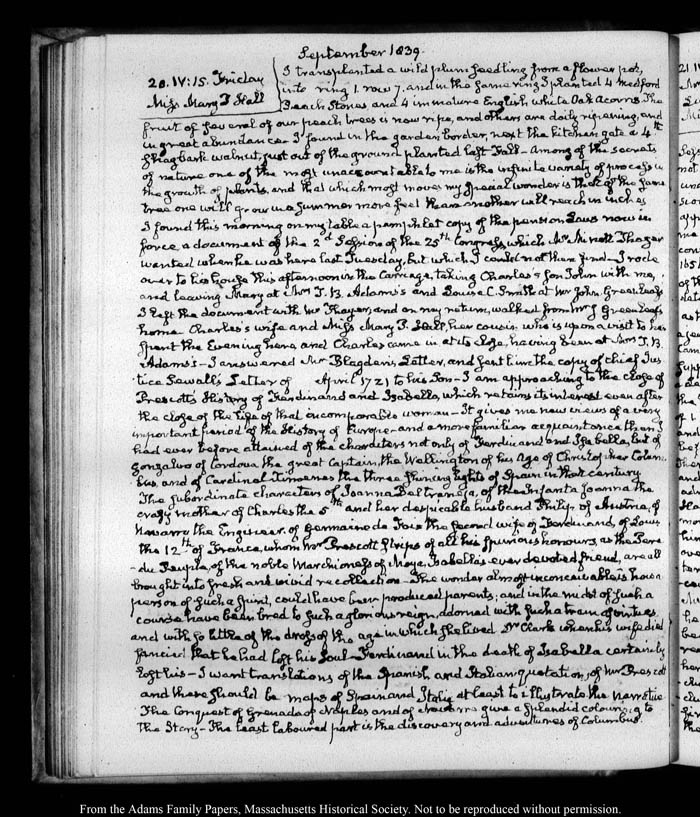 September 1839.
20. IV:15. Friday
Miss Mary T Hall
I transplanted a wild plum seedling from a flower pot,
into ring 1. row 7. and in the same ring I planted 4 Medford
Peach Stones and 4 immature English white Oak Acorns. The
fruit of several of our peach trees is now ripe, and others are daily ripening, and
in great abundance. I found in the garden border, next the kitchen gate a 4th
Shagbark walnut, just out of the ground planted last Fall — Among the secrets
of nature one of the most unaccountable to me is the infinite variety of process in
the growth of plants, and that which most moves my special wonder is that of the same
tree one will grow in a summer more feet than another will reach in inches
I found this morning on my table a pamphlet copy of the pension Laws now in
force a document of the 2d Session of the 25th Congress which Mr Minott Thayer
wanted when he was here last Tuesday, but which I could not then find — I rode
over to his house this afternoon in the Carriage, taking Charles's son John with me,
and leaving Mary at Mrs T. B. Adams's and Louisa C. Smith at Mr John Greenleaf's
I left the document with Mr Thayer, and on my return, walked from Mr J Greenleaf's
home Charles's wife and Miss Mary T. Hall, her cousin who is upon a visit to her
spent the Evening here, and Charles came in at its close, having been at Mrs T. B.
Adams's — I answered Mr Blagden's Letter, and sent him the copy of chief Jus-
tice Sewall's Letter of April 1721 to his Son — I am approaching to the close of
Prescott's History of Ferdinand and Isabella, which retains its interest even after
the close of the life of that incomparable woman — It gives me new views of a very
important period of the History of Europe — and a more familiar acquaintance than I
had ever before attained of the characters not only of Ferdinand and Isabella, but of
Gonzalvo of Cordova, the great Captain, the Wellington of his age of Christopher Colum-
bus, and of Cardinal Ximenes the three shining lights of Spain in that century
The subordinate characters of Joanna Beltraneja, of the Infanta Joanna the
crazy mother of Charles the 5th and her despicable husband Philip of Austria, of
Navarro the Engineer, of Germaine de Foix the second wife of Ferdinand, of Louis
the 12th of France, whom Mr Prescott strips of all his spurious honours, as the Pere
du Peuple, of the noble Marchioness of Moya, Isabella's ever devoted friend, are all
brought into fresh and vivid recollection — The wonder almost inconceivable is how a
person of such a
could have been produced parents; and in the midst of such a
course have been bred to such a glorious reign, adorned with such a train of virtues,
and with so little of the dross of the age in which she lived. Dr Clark when his wife died
fancied that he had lost his Soul — Ferdinand in the death of Isabella certainly
lost his — I want translations of the Spanish and Italian quotations of Mr Prescott
and there should be maps of Spain and Italy at least to illustrate the narrative
The Conquest of Grenada of Naples and of Navarre give a splendid colouring to
the Story — The least laboured part is the discovery and adventures of Columbus.
From the Adams Family Papers, Massachusetts Historical Society. Not to be reproduced without permission.